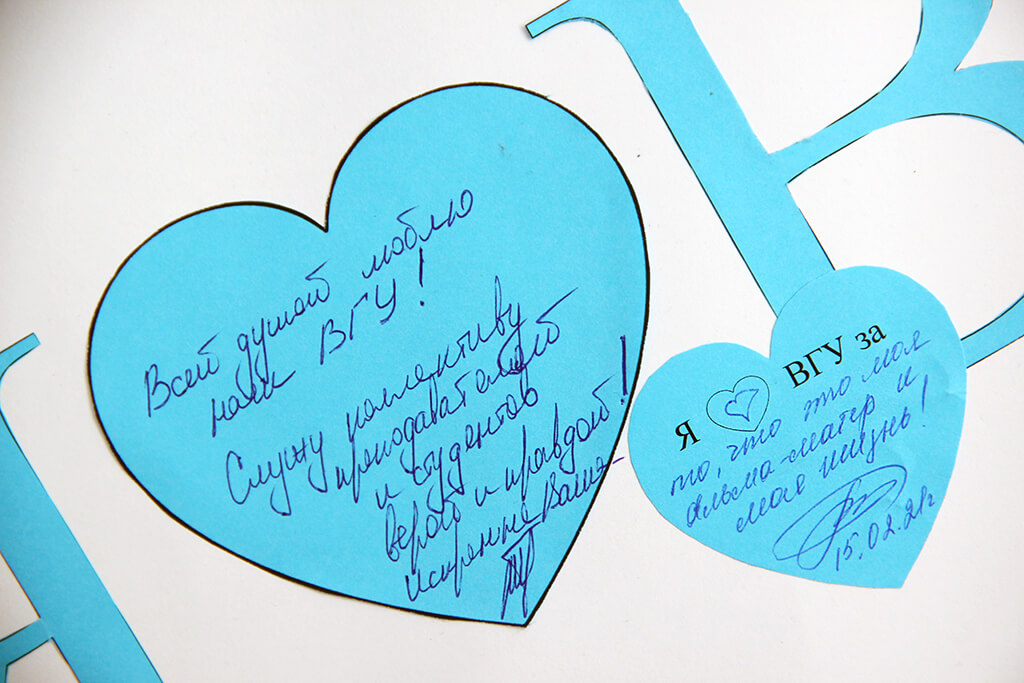 Всей душой люблю
наш ВГУ!
Служу коллективу
преподавателей
и студентов
верой и правдой!
Искренне Ваша-
Я ВГУ за
то, что это моя
альма-матер и
моя жизнь!
15.02.21г